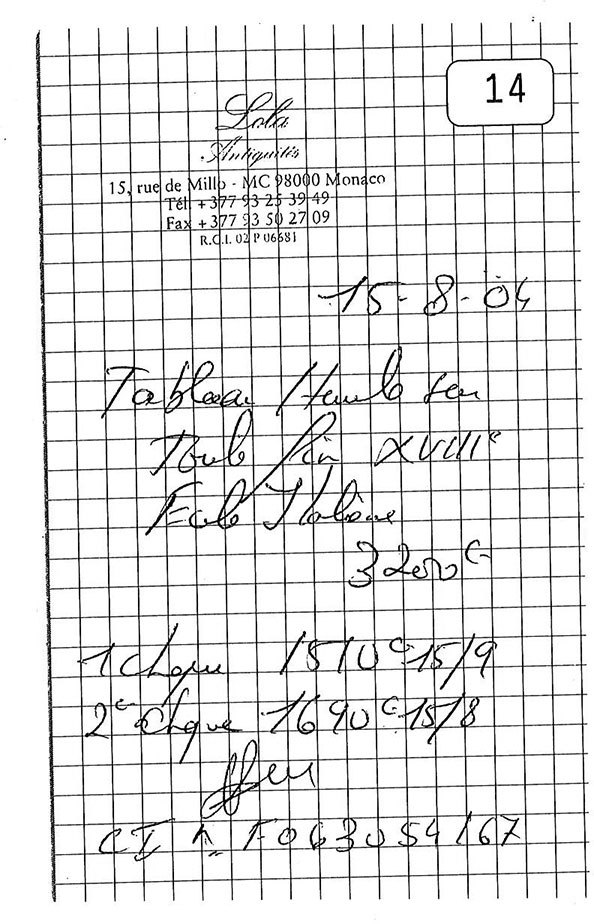 14
Lola
Antiquités
15, rue de Millo - MC 98000 Monaco
Tél. +377 93 25 39 49
Fax +377 93 50 27 09
R.C.I. 02 P 06681
15-8-04
Tableau Huile sur
Toile fin XVIIIe
Italienne
3200€
1 chque 1510€ 15/9
2e chque 1690€ 15/8
CI n F063054167